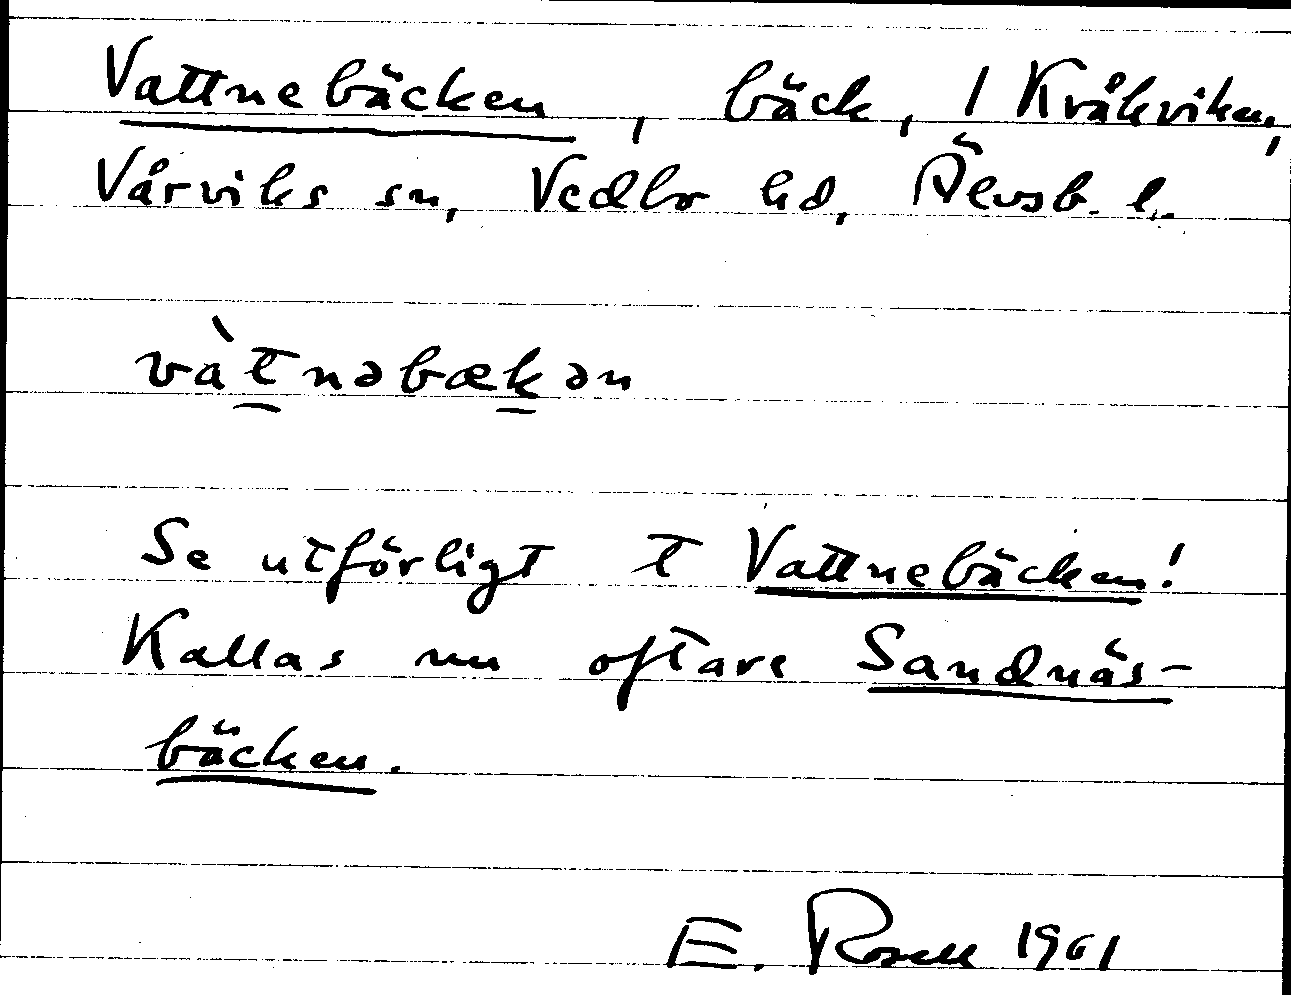 Vattnebäcken, bäck, / Kråkviken,
Vårviks sn, Vedbo hd, Älvsb. l.
vàt̠nəbæk̠ən
Se utförligt t Vattnebäcken!
Kallas nu oftare Sandnäs-
bäcken.
E. Rosell 1961